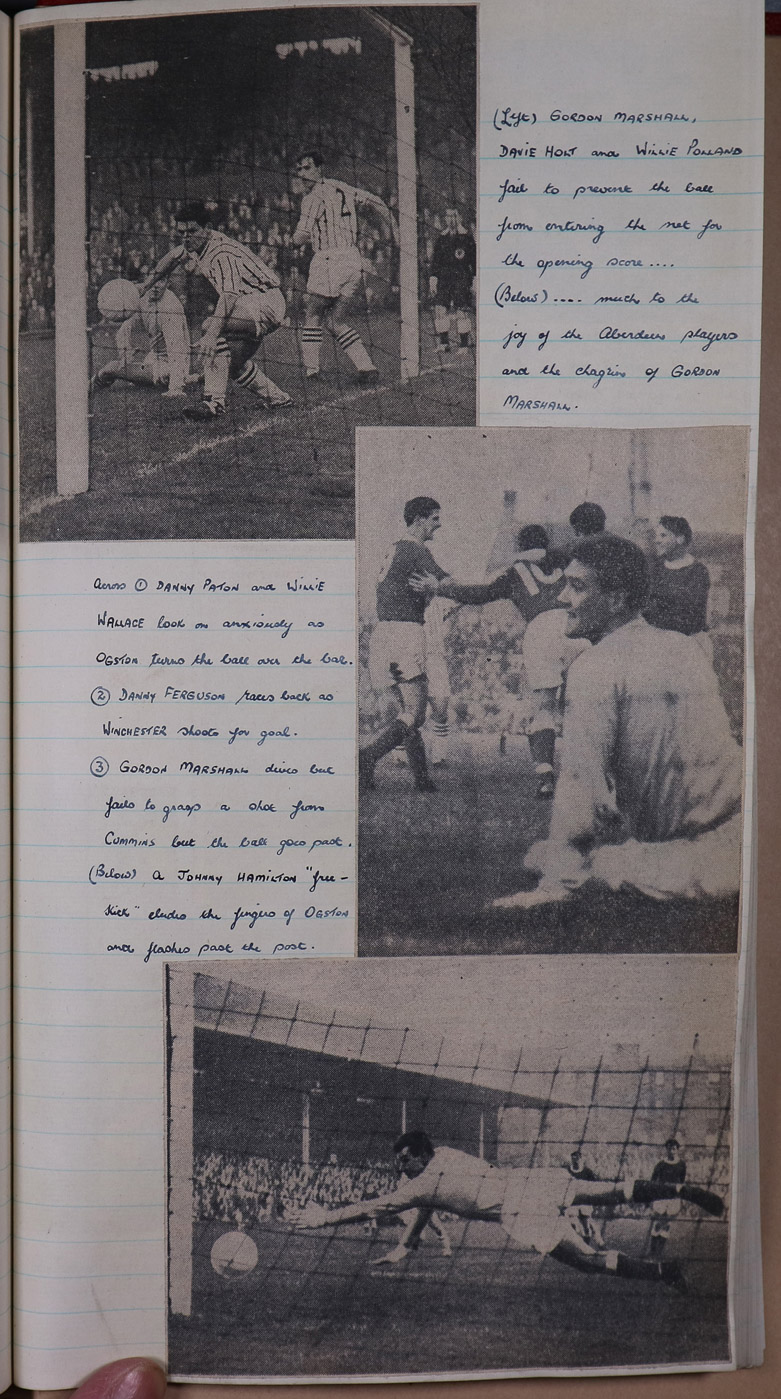 (Left) GORDON MARSHALL,
DAVIE HOLT and WILLIE POLLAND
fail to prevent the ball
from entering the net for
the opening score....
(Below).... much to the
joy of the Aberdeen players
and the chagrin of GORDON
MARSHALL.
2
10
Across ① DANNY PATON and WILLIE
WALLACE look on anxiously as
OGSTON turns the ball over the bar.
② DANNY FERGUSON races back as
WINCHESTER shoots for goal.
③ GORDON MARSHALL dives but
fails to grasp a shot from
CUMMINS but the ball goes past.
(Below) a JOHNNY HAMILTON "free-
kick" eludes the fingers of OGSTON
and flashes past the post.